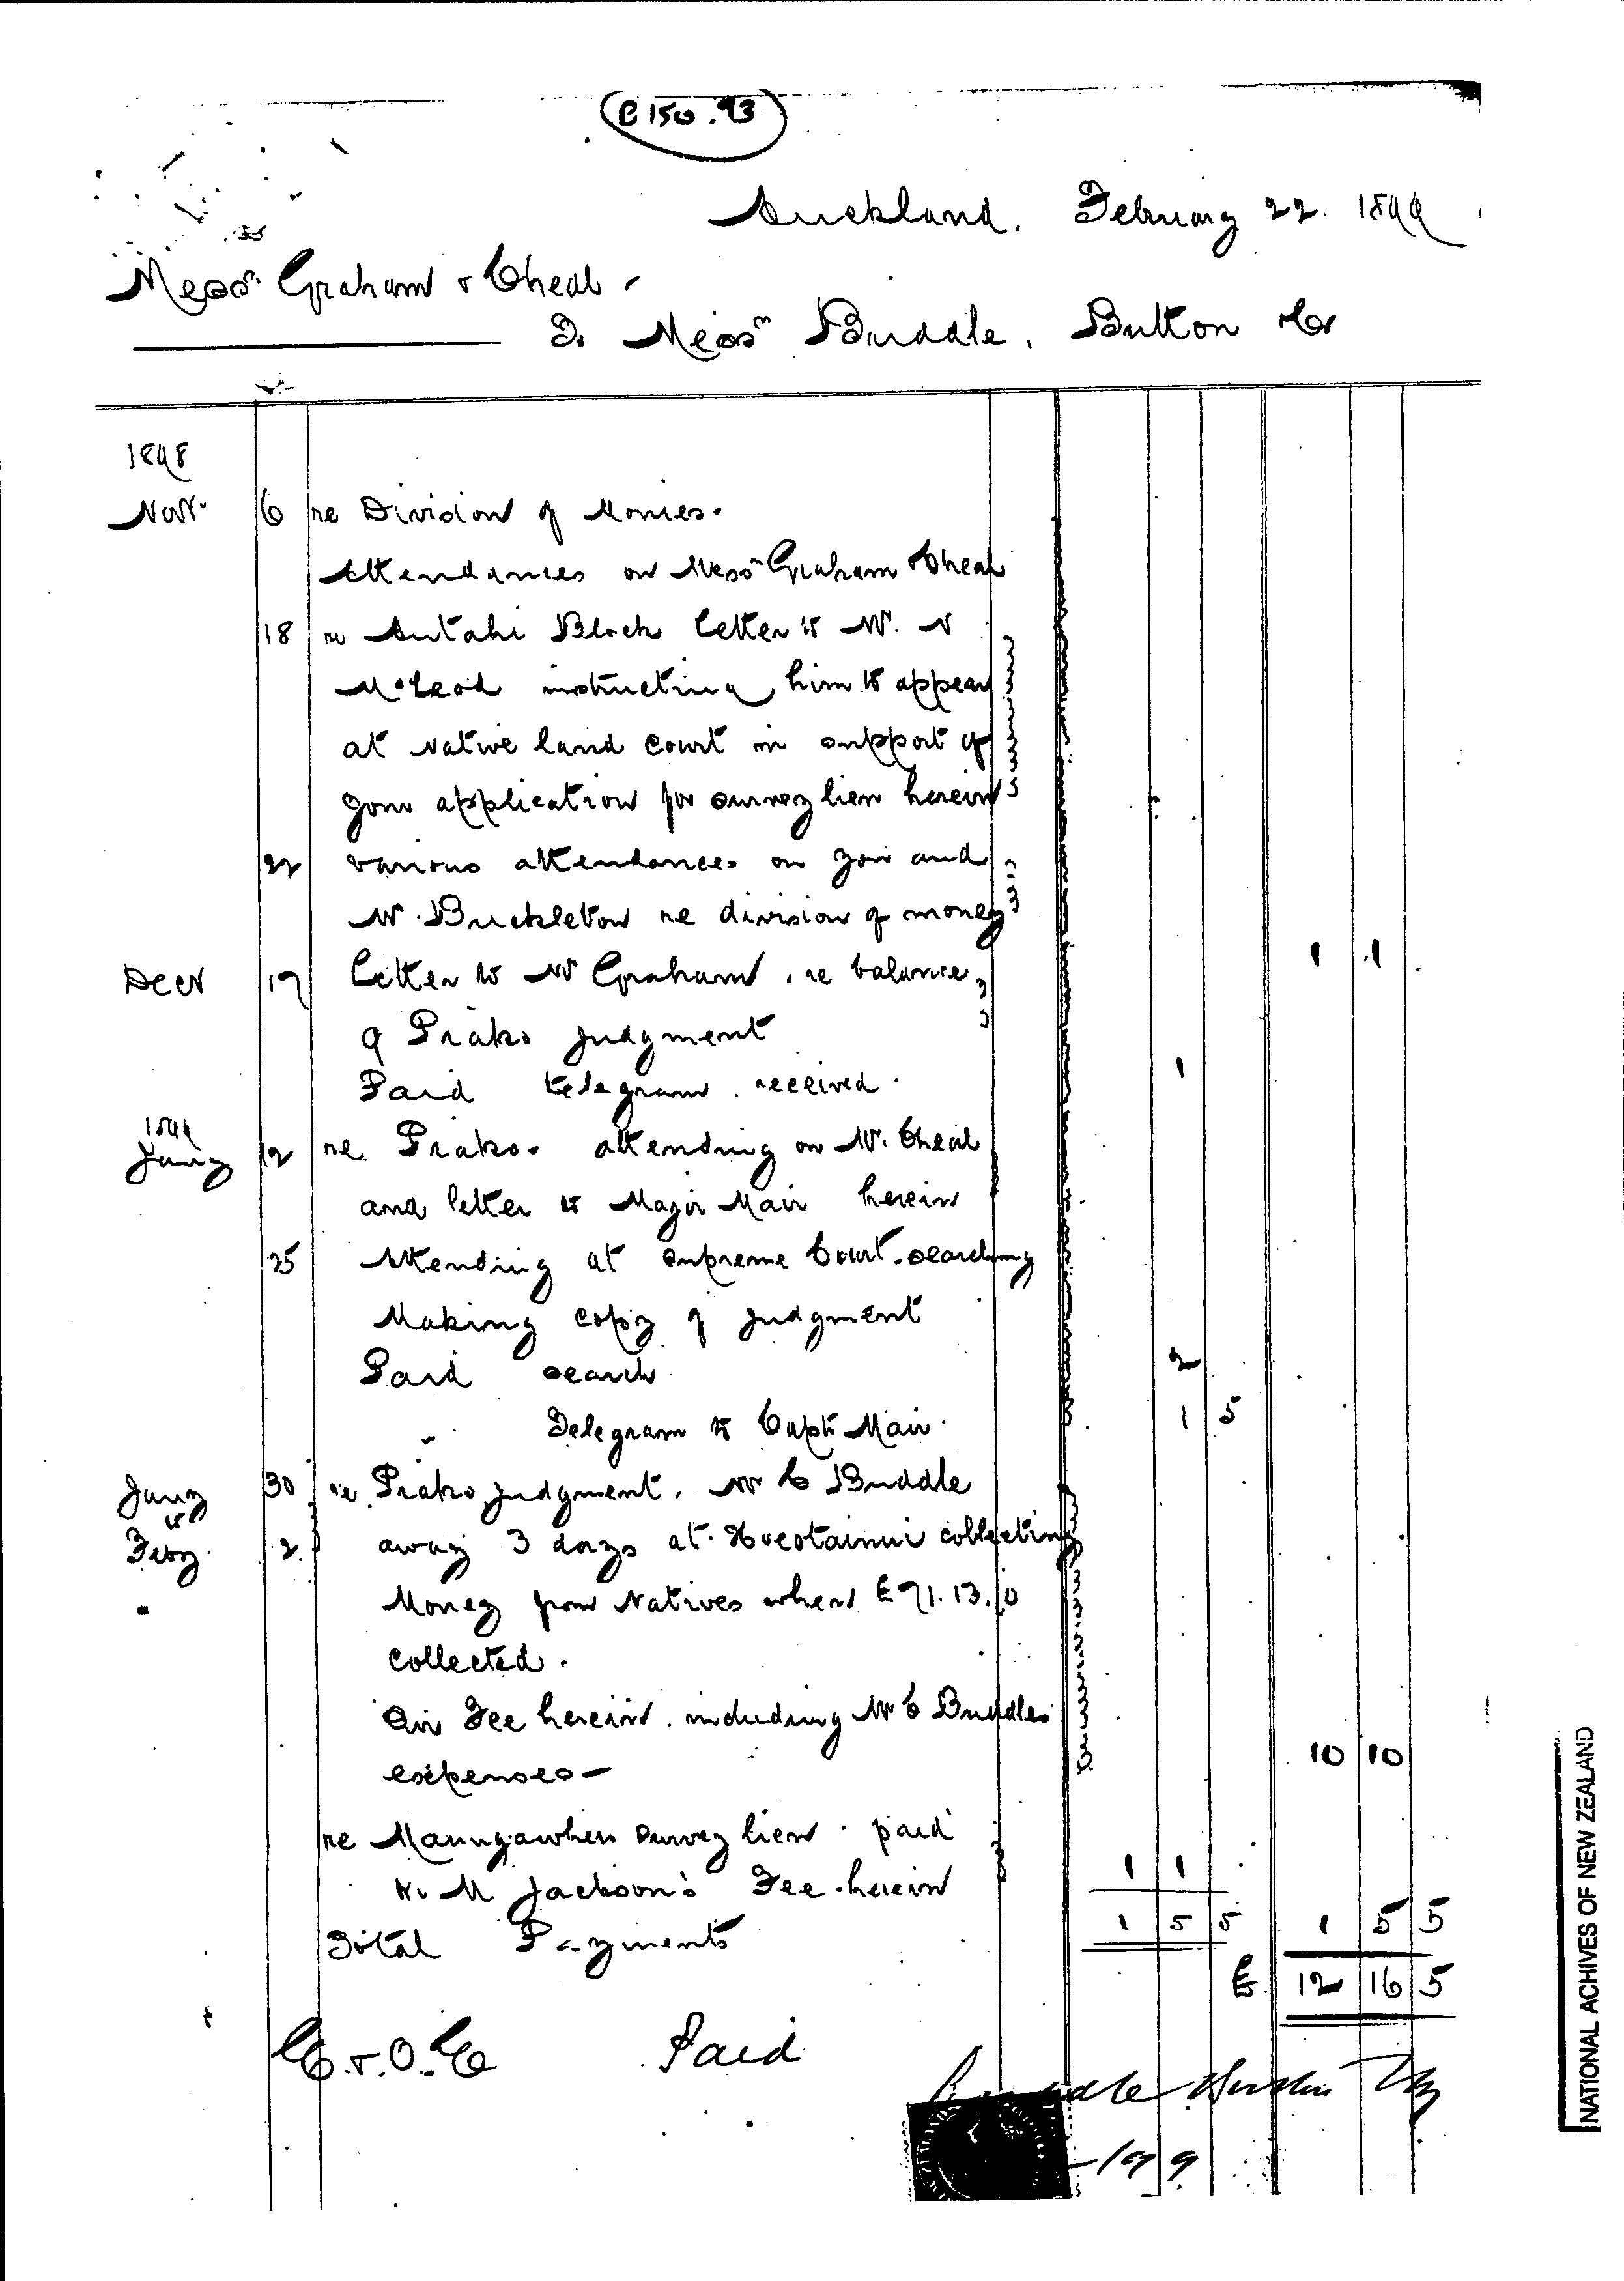 B 150.93
Auckland. February 22. 1899
Messrs Graham & Cheal
To Messrs Buddle, Button & Co
1898
Novr 6 re Division of Monies.
Attendances on Messrs Graham & Cheal
18 re Autahi Block letter to Mr. N
McLeod instructing him to appear
at Native land Court in support of
your application for survey lien herein
22 various attendances on you and
Mr Buckleton re division of money
1 1
Decr 17 Letter to Mr Graham re balance
of Piako judgment
Paid telegram received. 1
1899
Jany 12 re Piako. attending on Mr. Cheal
and letter to Major Mair herein
25 Attending at Supreme Court searching
Making copy of judgment
Paid search 2
" Telegram to Capt Mair 1 5
Jany 30 re Piako judgment. Mr C Buddle
to
Feby. 2. away 3 days at Hoeotainui collecting
Money from Natives when £71.13.0
collected.
Our Fee herein including Mr C Buddles
expenses 10 10
re Maungawhero survey lien. paid
H. M Jackson's Fee herein 1 1
Total Payments 1 5 5 1 5 5
£ 12 16 5
E. & O. E Paid
Buddle Button & Co
NATIONAL ACHIVES OF NEW ZEALAND